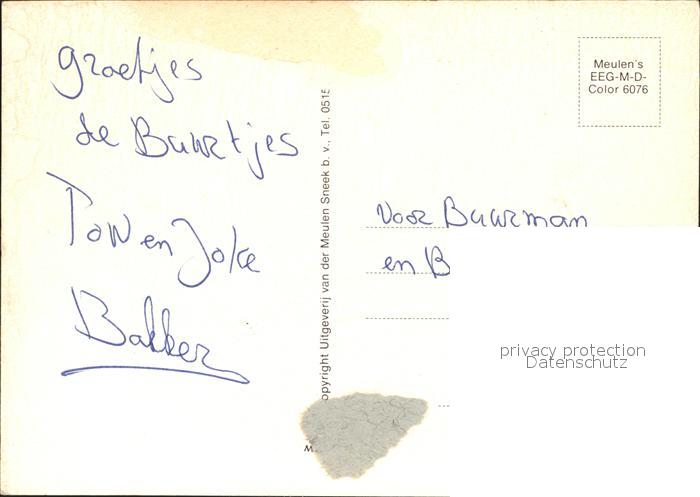 groetjes
de Buurtjes
Ton en Joke
Bakker
opyright Uitgeverij van der Meulen Sneek b. v., Tel. 0515
Meulen's
EEG-M-D-
Color 6076
Voor Buurman
en B
privacy protection
Datenschutz
M